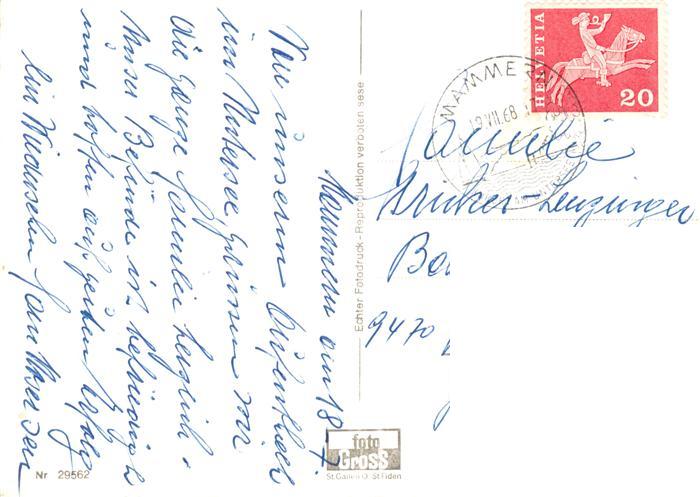 Mammern am 18. 7.
Von unserm Aufenthalt
im Untersee grüssen wir
die ganze Familie herzlich.
Unser Befinden ist befriedigend
und hoffen auf guten Erfolg
Auf Wiedersehen
Echter Fotodruck - Reproduktion verboten sese
foto
Gross
St. Gallen O. St. Fiden
Nr 29562
HELVETIA
20
MAMMERN
18.VII.68
Familie
9470